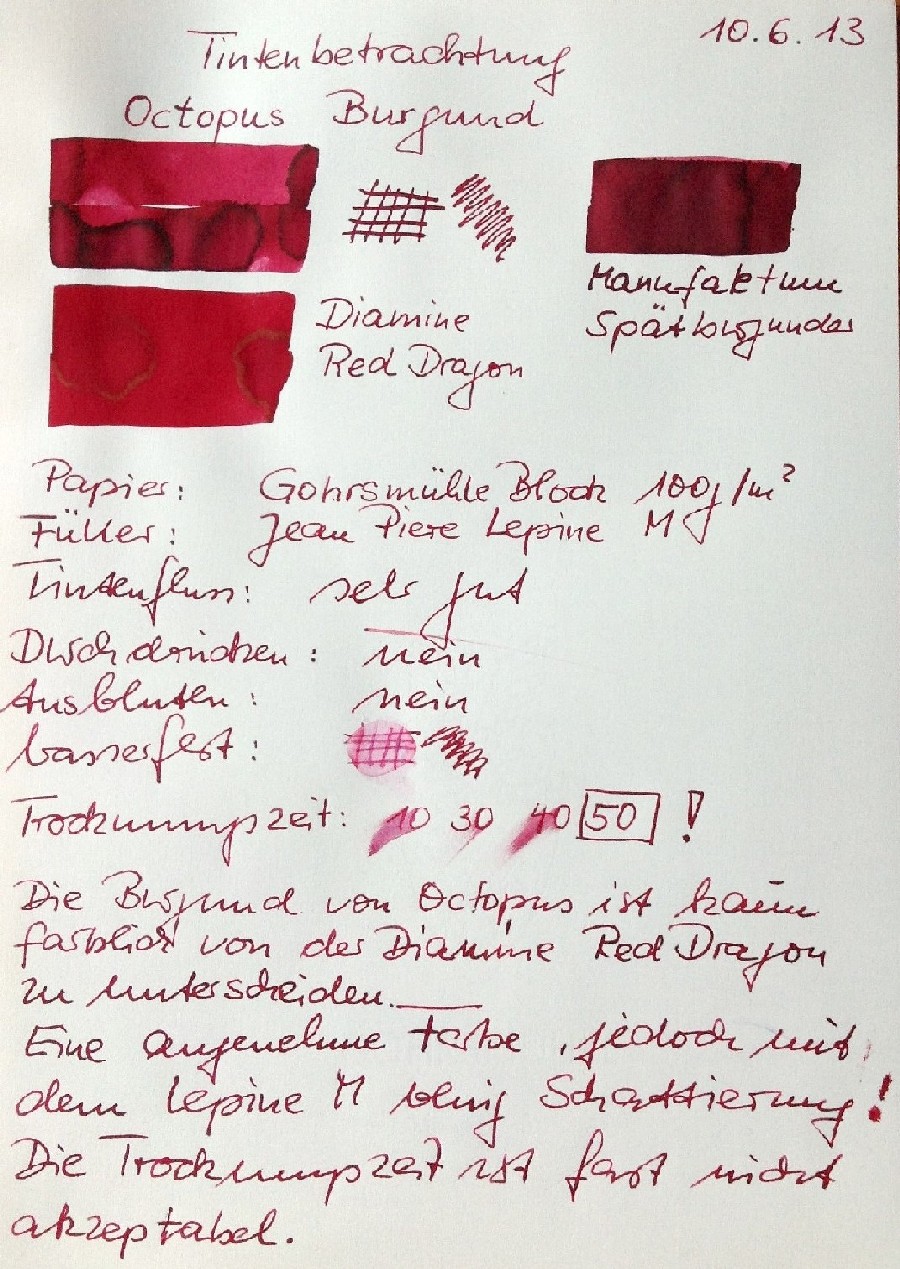 10.6.13
Tintenbetrachtung
Octopus Burgund
Manufaktum
Spätburgunder
Diamine
Red Dragon
Papier: Gohrsmühle Block 100g/m²
Füller: Jean Piere Lepine M
Tintenfluss: sehr gut
Durchdrücken: nein
Ausbluten: nein
Wasserfest:
Trocknungszeit: 10 30 40 50 !
Die Burgund von Octopus ist kaum
farblich von der Diamine Red Dragon
zu unterscheiden.
Eine angenehme Farbe, jedoch mit
dem Lepine M wenig Schattierung!
Die Trocknungszeit ist fast nicht
akzeptabel.